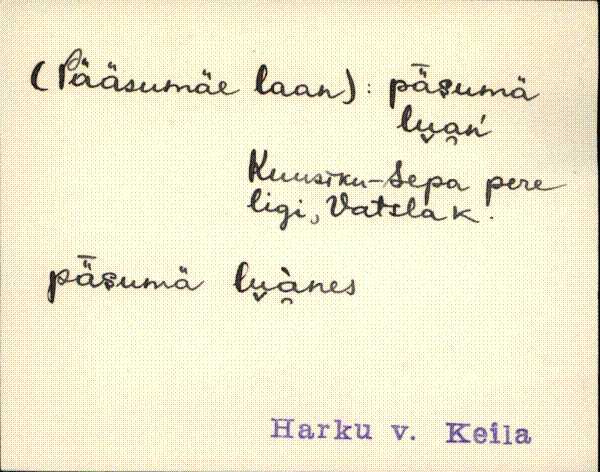 (Pääsumäe laan): pǟsumä
lu̬a̯ń
Kuusiku-Sepa pere
ligi, Vatsla k.
pǟsumä lu̬à̯nes
Harku v. Keila